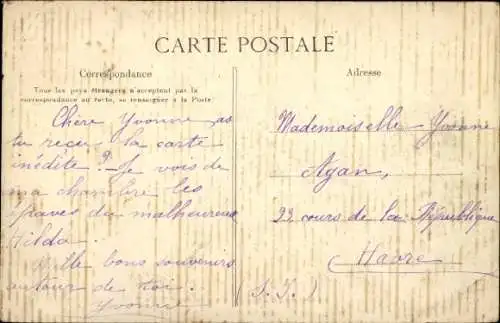 CARTE POSTALE
Correspondance
Tous les pays étrangers n'acceptent pas la
correspondance au recto, se renseigner à la Poste
Adresse
Chère Yvonne as
tu reçu la carte
inédite ? Je vois de
ma chambre les
épaves du malheureux
Hilda.
Mille bons souvenirs
autour de toi.
Yvonne
Mademoiselle Yvonne
Ayan,
22 cours de la République
Havre
(S. I.)